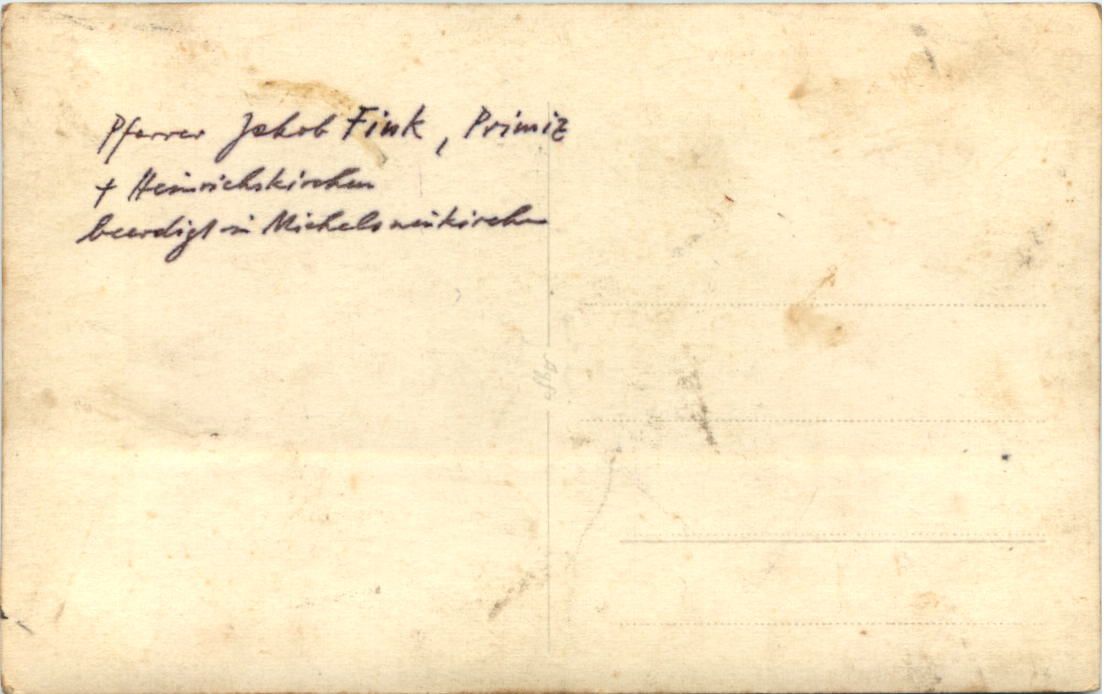 Pfarrer Jakob Fink, Primiz
+ Heinrichskirchen
beerdigt in Michelsneukirchen